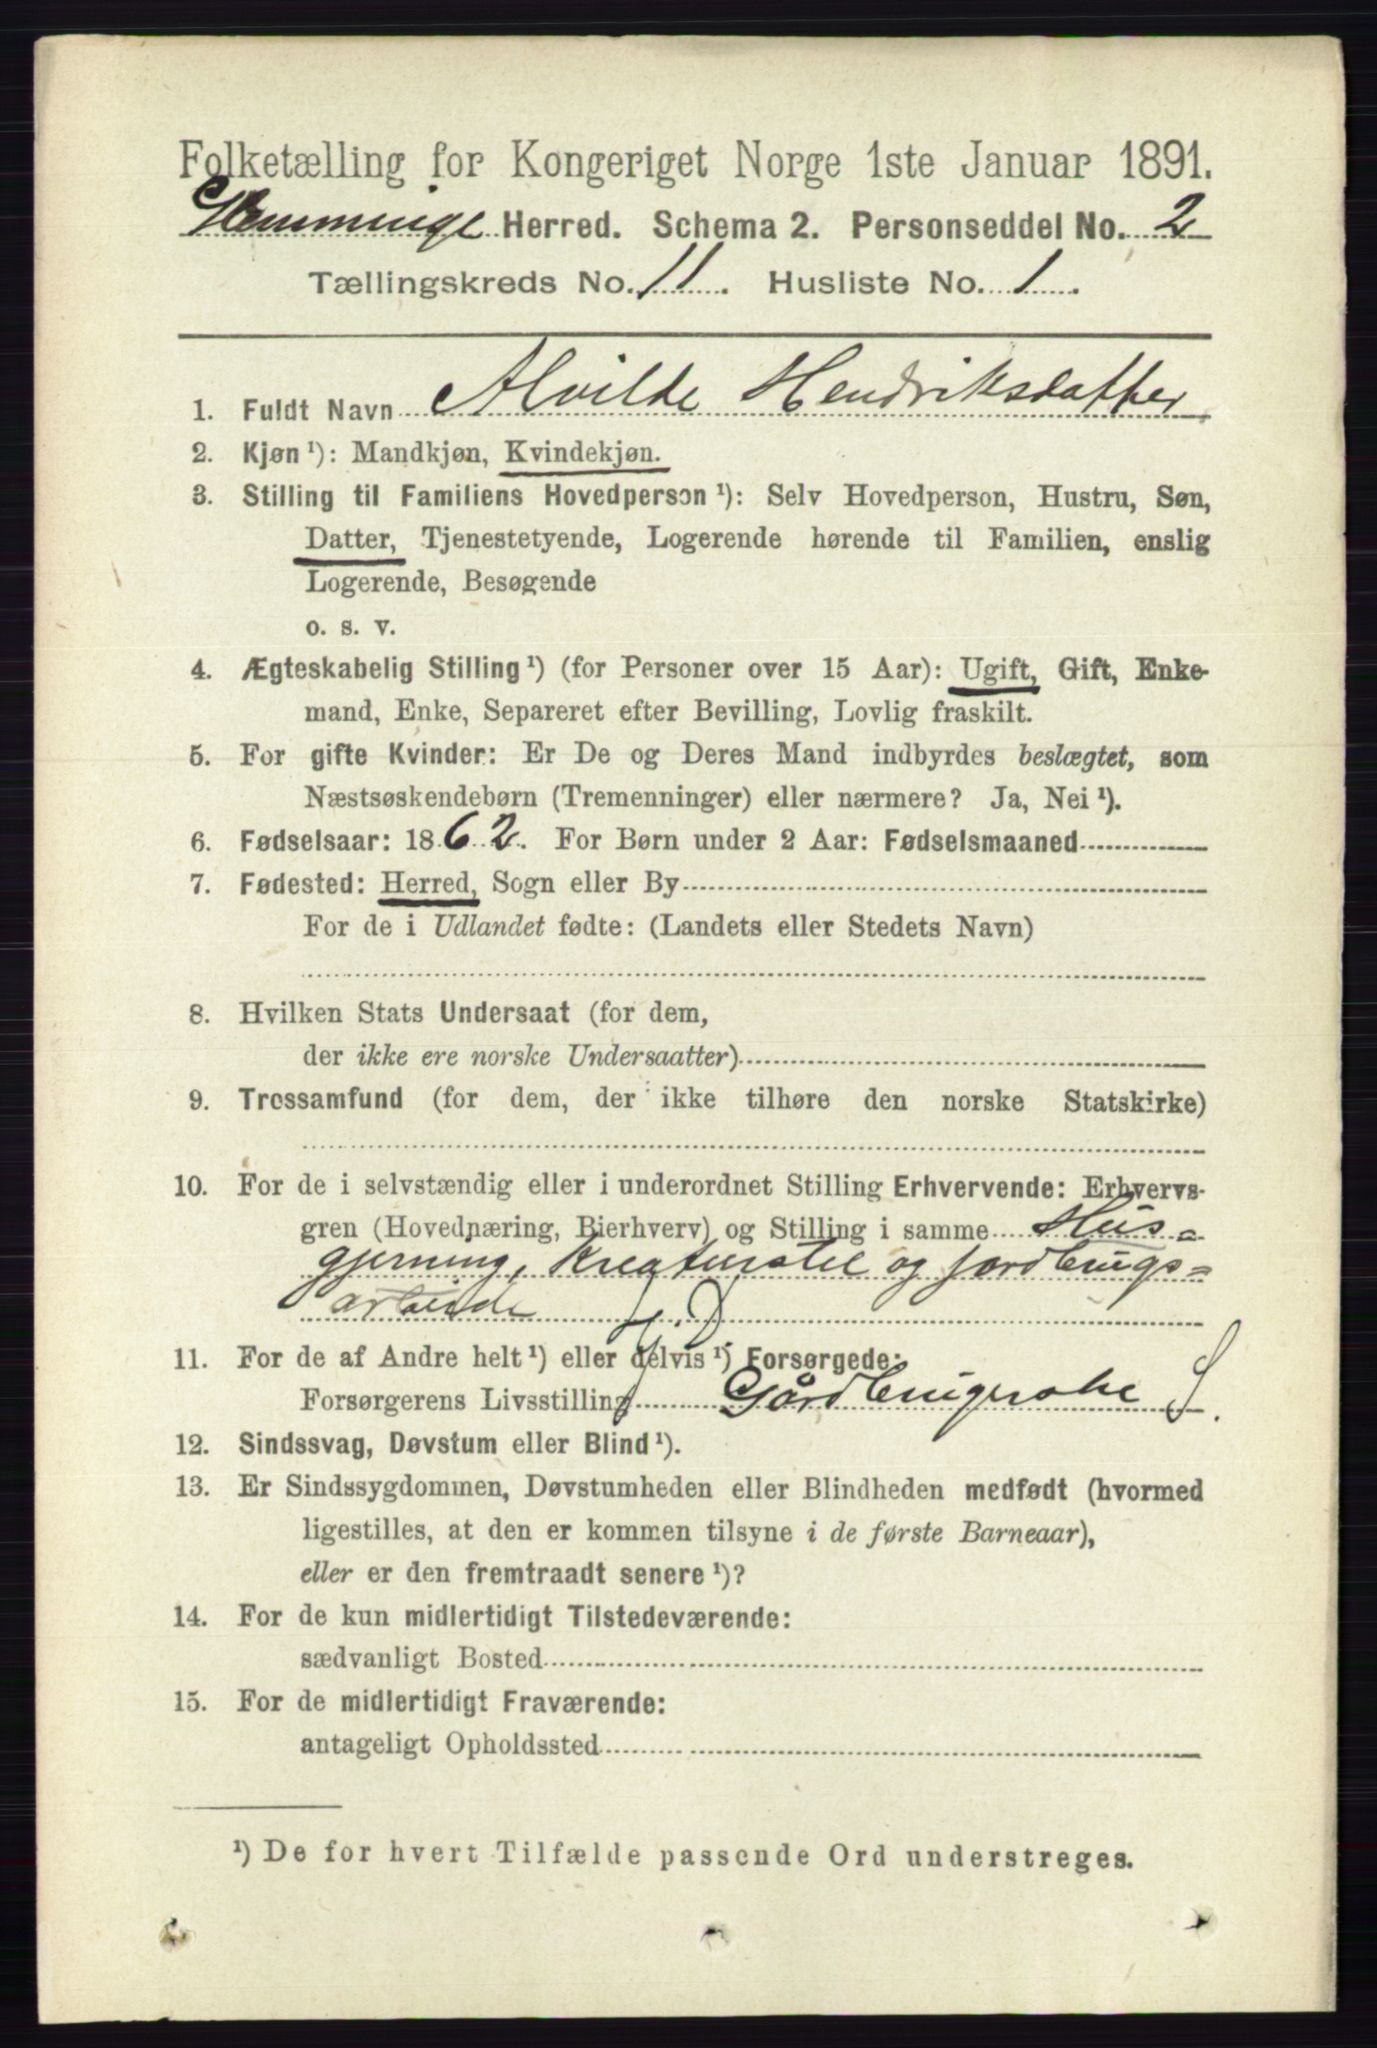 Folketælling for Kongeriget Norge 1ste Januar 1891.
Glemminge Herred. Schema 2. Personseddel No. 2
Tællingskreds No. 11. Husliste No. 1.
1. Fuldt Navn Alvilde Hendriksdatter
2. Kjøn ¹): Mandkjøn, Kvindekjøn.
3. Stilling til Familiens Hovedperson ¹): Selv Hovedperson, Hustru, Søn,
Datter, Tjenestetyende, Logerende hørende til Familien, enslig
Logerende, Besøgende
o. s. v.
4. Ægteskabelig Stilling ¹) (for Personer over 15 Aar): Ugift, Gift, Enke-
mand, Enke, Separeret efter Bevilling, Lovlig fraskilt.
5. For gifte Kvinder: Er De og Deres Mand indbyrdes beslægtet, som
Næstsøskendebørn (Tremenninger) eller nærmere? Ja, Nei ¹).
6. Fødselsaar: 1862. For Børn under 2 Aar: Fødselsmaaned
7. Fødested: Herred, Sogn eller By
For de i Udlandet fødte: (Landets eller Stedets Navn)
8. Hvilken Stats Undersaat (for dem,
der ikke ere norske Undersaatter)
9. Trossamfund (for dem, der ikke tilhøre den norske Statskirke)
10. For de i selvstændig eller i underordnet Stilling Erhvervende: Erhvervs-
gren (Hovednæring, Bierhverv) og Stilling i samme Hus-
gjerning, Kreaturstel og jordbrugs-
arbeide H. D
11. For de af Andre helt ¹) eller delvis ¹) Forsørgede:
Forsørgerens Livsstilling Gårdbrugerske S.
12. Sindssvag, Døvstum eller Blind ¹).
13. Er Sindssygdommen, Døvstumheden eller Blindheden medfødt (hvormed
ligestilles, at den er kommen tilsyne i de første Barneaar),
eller er den fremtraadt senere ¹)?
14. For de kun midlertidigt Tilstedeværende:
sædvanligt Bosted
15. For de midlertidigt Fraværende:
antageligt Opholdssted
¹) De for hvert Tilfælde passende Ord understreges.